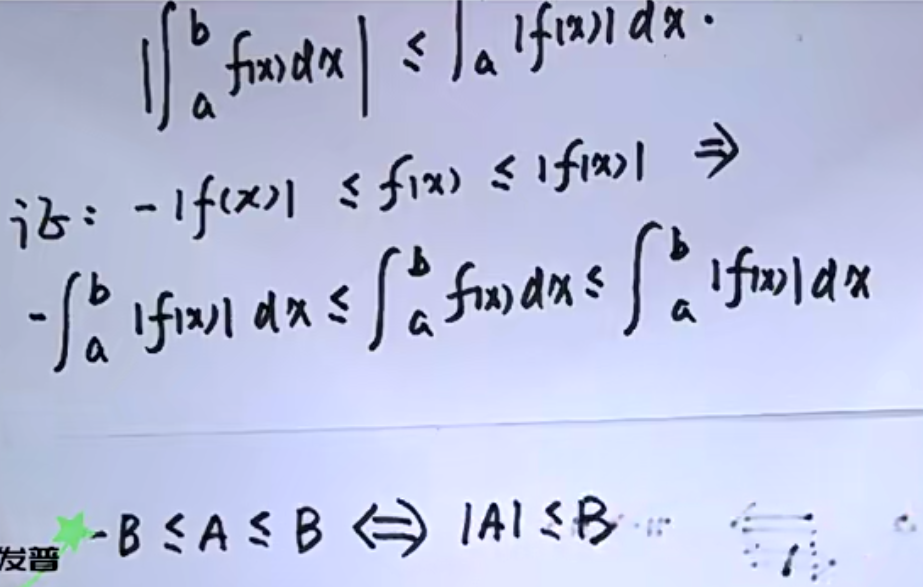 |∫_a^b f(x)dx| ≤ ∫_a |f(x)| dx.
证: -|f(x)| ≤ f(x) ≤ |f(x)| ⇒
-∫_a^b |f(x)| dx ≤ ∫_a^b f(x)dx ≤ ∫_a^b |f(x)| dx
-B ≤ A ≤ B ⇔ |A| ≤ B
发普